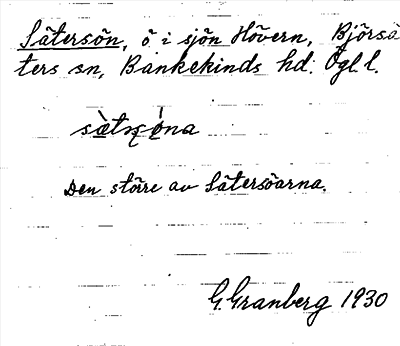 Sätersön, ö i sjön Hövern, Björsä
ters sn, Bankekinds hd. Ögl l.
sàtʂø̀na
Den större av Sätersöarna.
G. Granberg 1930